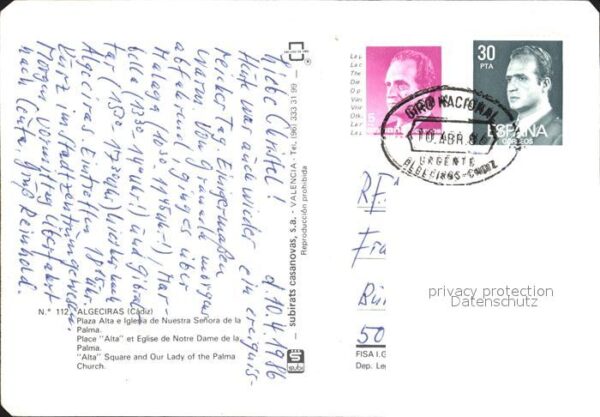 d. 10.4.1986
Liebe Christel!
Heute war auch wieder ein ereignis-
reicher Tag. Einigermaßen
warm. Von Granada morgens
abfahrend ging es über
Malaga (10³⁰-11⁴⁵ Uhr), Mar
bella (13⁰⁰-14 Uhr) und Gibral
tar (15⁰⁰-17³⁰ Uhr) hierher nach
Algeciras. Eintreffen 18¹⁵ Uhr.
Kurz im Stadtzentrum gewesen.
Morgen Vormittag Überfahrt
nach Ceuta. Gruß Reinhold.
N.º 112. ALGECIRAS (Cádiz)
Plaza Alta e Iglesia de Nuestra Señora de la
Palma.
Place "Alta" et Eglise de Notre Dame de la
Palma.
"Alta" Square and Our Lady of the Palma
Church.
subirats casanovas, s.a. - VALENCIA - Tel. (96) 333 31 99
Reproducción prohibida
subi
30
PTA
ESPAÑA
CORREOS
5
GIRO NACIONAL
10. ABR. 86
URGENTE
ALGECIRAS-CADIZ
RF.
Fra
Bür
50
FISA I.G
Dep. Leg
privacy protection
Datenschutz